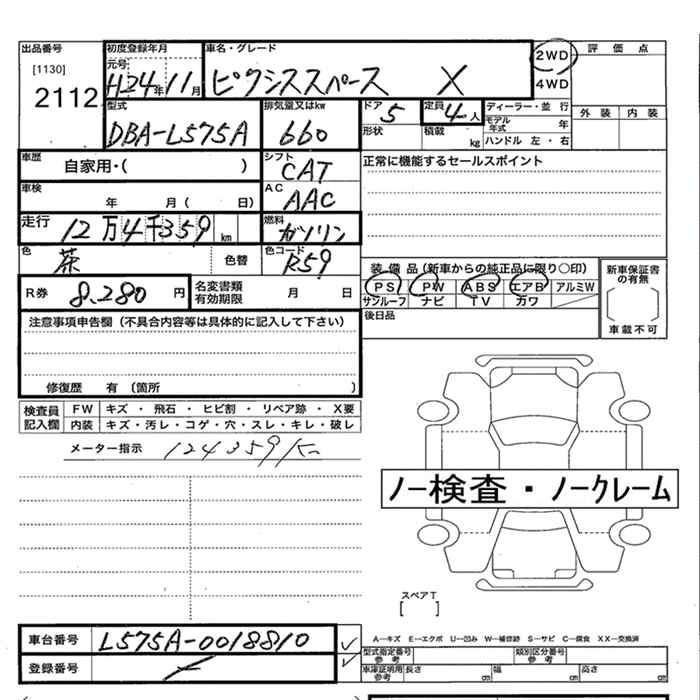 出品番号
[1130]
2112
初度登録年月
元号
H24年11月
車名・グレード
ピクシススペース X
2WD
4WD
評価点
外装 内装
型式
DBA-L575A
排気量又はkw
660
ドア
5
形状
定員
4人
積載
kg
ディーラー・並行
モデル年式
年
ハンドル 左・右
車歴
自家用・( )
シフト
CAT
正常に機能するセールスポイント
車検
年 月( 日)
AC
AAC
走行
12万4千359km
燃料
ガソリン
色
茶
色替
色コード
R59
装備品(新車からの純正品に限り〇印)
PS PW ABS エアB アルミW
サンルーフ ナビ TV カワ
新車保証書の有無
車載不可
R券
8,280円
名変書類有効期限
月 日
後日品
注意事項申告欄(不具合内容等は具体的に記入して下さい)
修復歴 有(箇所 )
検査員記入欄
FW キズ・飛石・ヒビ割・リペア跡・X要
内装 キズ・汚レ・コゲ・穴・スレ・キレ・破レ
メーター指示 124359K
ノー検査・ノークレーム
スペアT
[ ]
車台番号
L575A-0018810
登録番号
A―キズ E―エクボ U―凹み W―補修跡 S―サビ C―腐食 XX―交換済
型式指定番号
参考
類別区分番号
参考
車庫証明用
参考
長さ
cm
幅
cm
高さ
cm